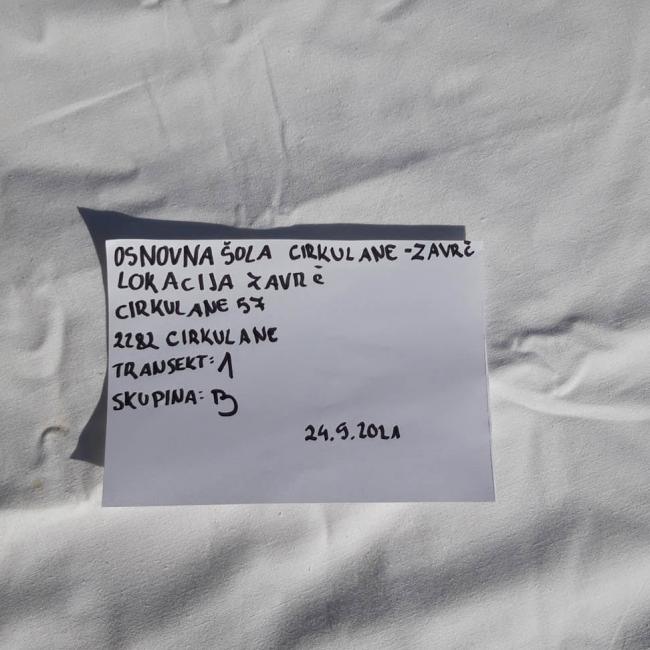 OSNOVNA ŠOLA CIRKULANE-ZAVRČ
LOKACIJA ZAVRČ
CIRKULANE 57
2282 CIRKULANE
TRANSEKT: 1
SKUPINA: B
24.9.2021